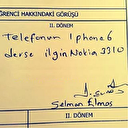 ĞRENCİ HAKKINDAKİ GÖRÜŞÜ
II. DÖNEM
Telefonun Iphone6
derse ilgin Nokia 3310
Selman Elmas
II. DÖNEM